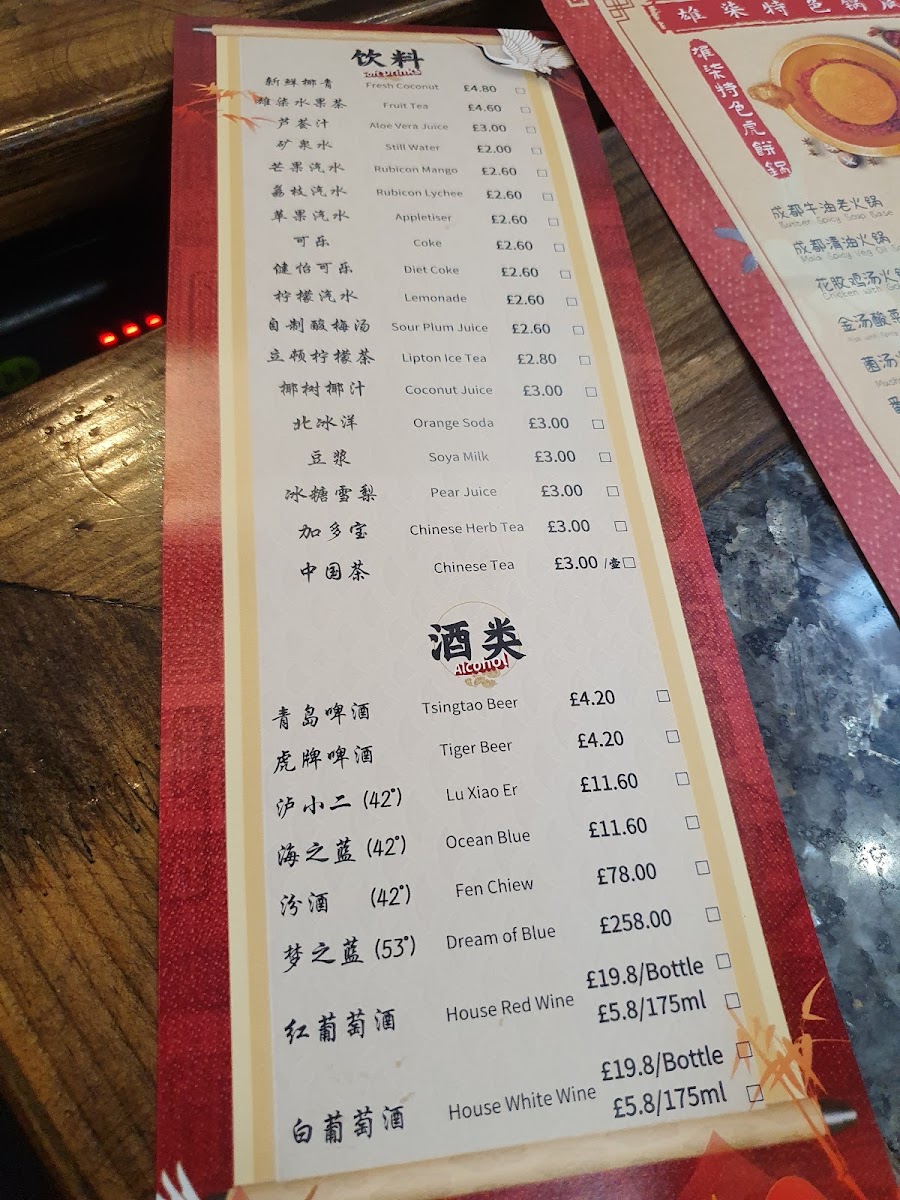 饮料
Soft Drinks
新鲜椰青 Fresh Coconut £4.80 □
雄柒水果茶 Fruit Tea £4.60 □
芦荟汁 Aloe Vera Juice £3.00 □
矿泉水 Still Water £2.00 □
芒果汽水 Rubicon Mango £2.60 □
荔枝汽水 Rubicon Lychee £2.60 □
苹果汽水 Appletiser £2.60 □
可乐 Coke £2.60 □
健怡可乐 Diet Coke £2.60 □
柠檬汽水 Lemonade £2.60 □
自制酸梅汤 Sour Plum Juice £2.60 □
立顿柠檬茶 Lipton Ice Tea £2.80 □
椰树椰汁 Coconut Juice £3.00 □
北冰洋 Orange Soda £3.00 □
豆浆 Soya Milk £3.00 □
冰糖雪梨 Pear Juice £3.00 □
加多宝 Chinese Herb Tea £3.00 □
中国茶 Chinese Tea £3.00 /壶 □
酒类
Alcohol
青岛啤酒 Tsingtao Beer £4.20 □
虎牌啤酒 Tiger Beer £4.20 □
泸小二 (42°) Lu Xiao Er £11.60 □
海之蓝 (42°) Ocean Blue £11.60 □
汾酒 (42°) Fen Chiew £78.00 □
梦之蓝 (53°) Dream of Blue £258.00 □
红葡萄酒 House Red Wine £19.8/Bottle □
£5.8/175ml □
白葡萄酒 House White Wine £19.8/Bottle □
£5.8/175ml □
雄柒特色锅底
雄柒特色虎餅锅
成都牛油老火锅
Butter Spicy Soup Base
成都清油火锅
Mala Spicy Veg Oil
花胶鸡汤火锅
Chicken with
金汤酸菜
菌汤